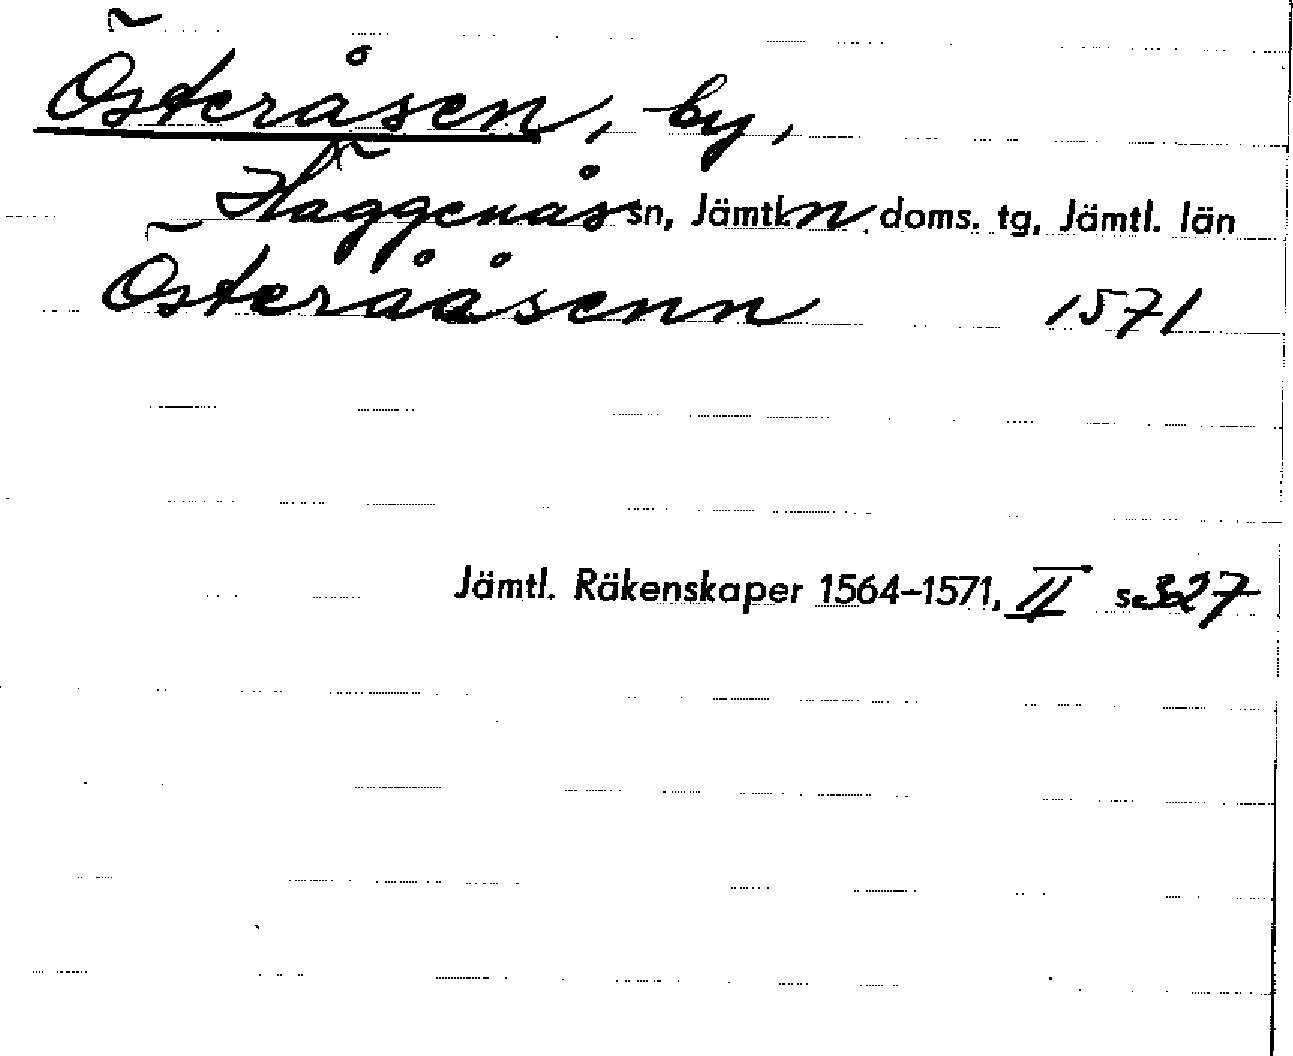 Österåsen, by,
Häggenås sn, Jämtl. n. doms. tg, Jämtl. län
Österååsenn 1571
Jämtl. Räkenskaper 1564–1571, II s. 327